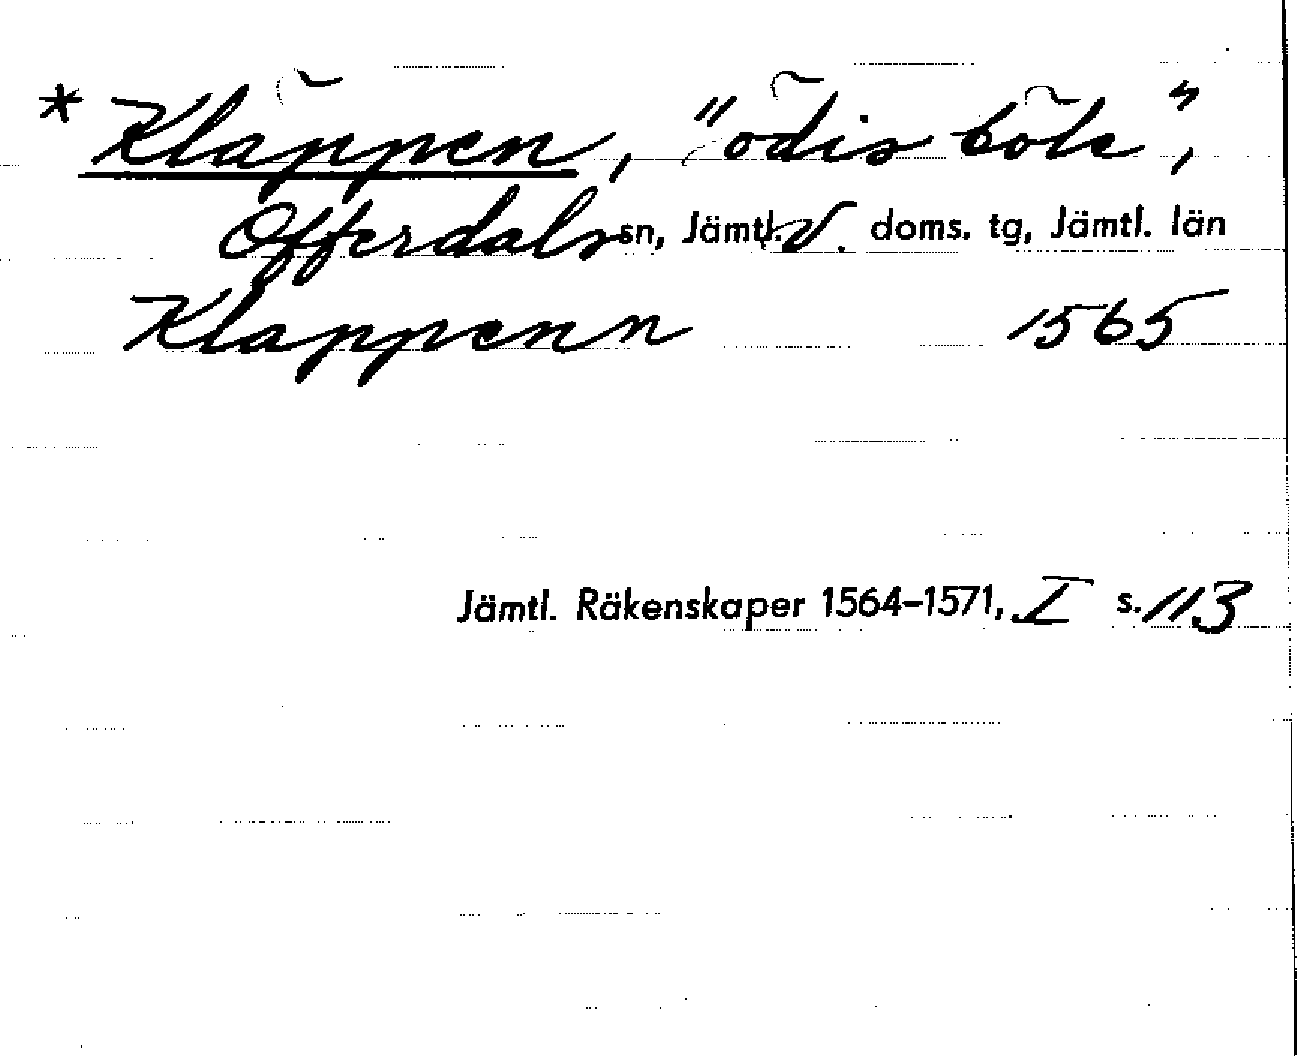 * Kläppen, "ödis böle",
Offerdals sn, Jämtl. V. doms. tg, Jämtl. län
Klappenn 1565
Jämtl. Räkenskaper 1564–1571, I s. 113